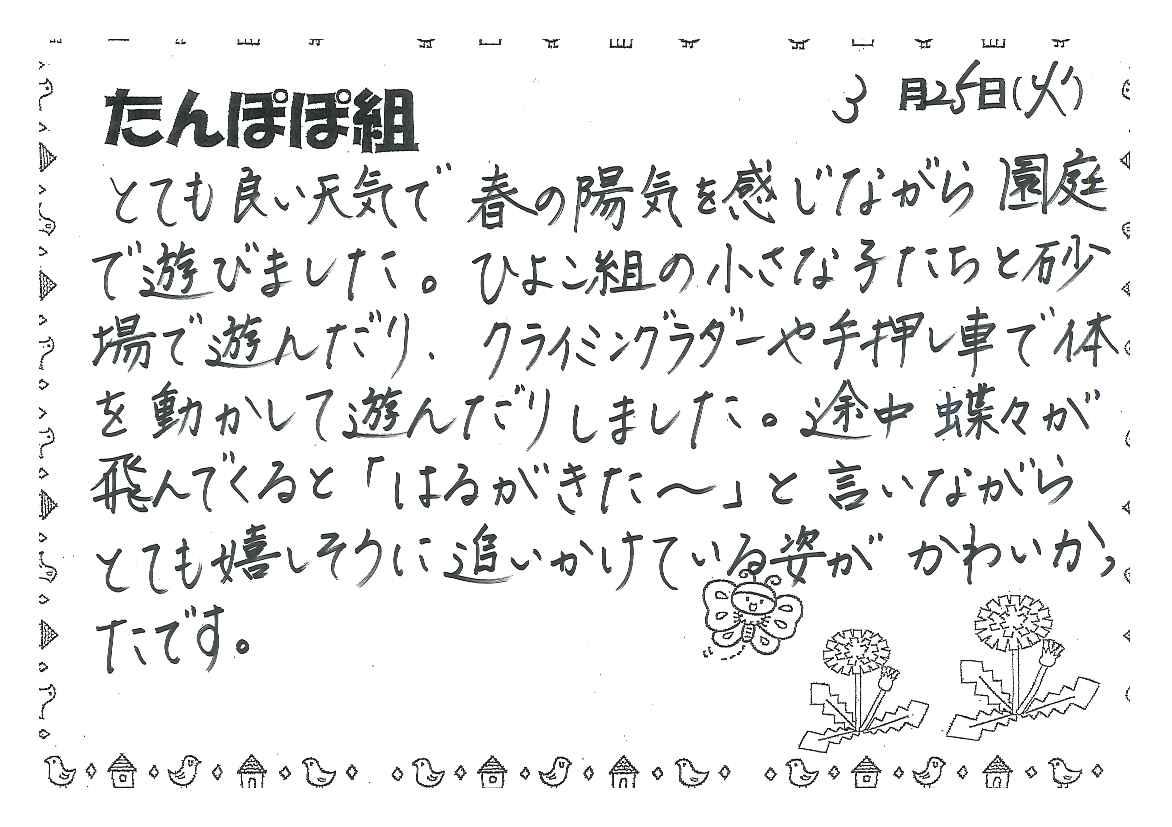 たんぽぽ組
3月25日(火)
とても良い天気で春の陽気を感じながら園庭
で遊びました。ひよこ組の小さな子たちと砂
場で遊んだり、クライミングラダーや手押し車で体
を動かして遊んだりしました。途中蝶々が
飛んでくると「はるがきた〜」と言いながら
とても嬉しそうに追いかけている姿がかわいかっ
たです。